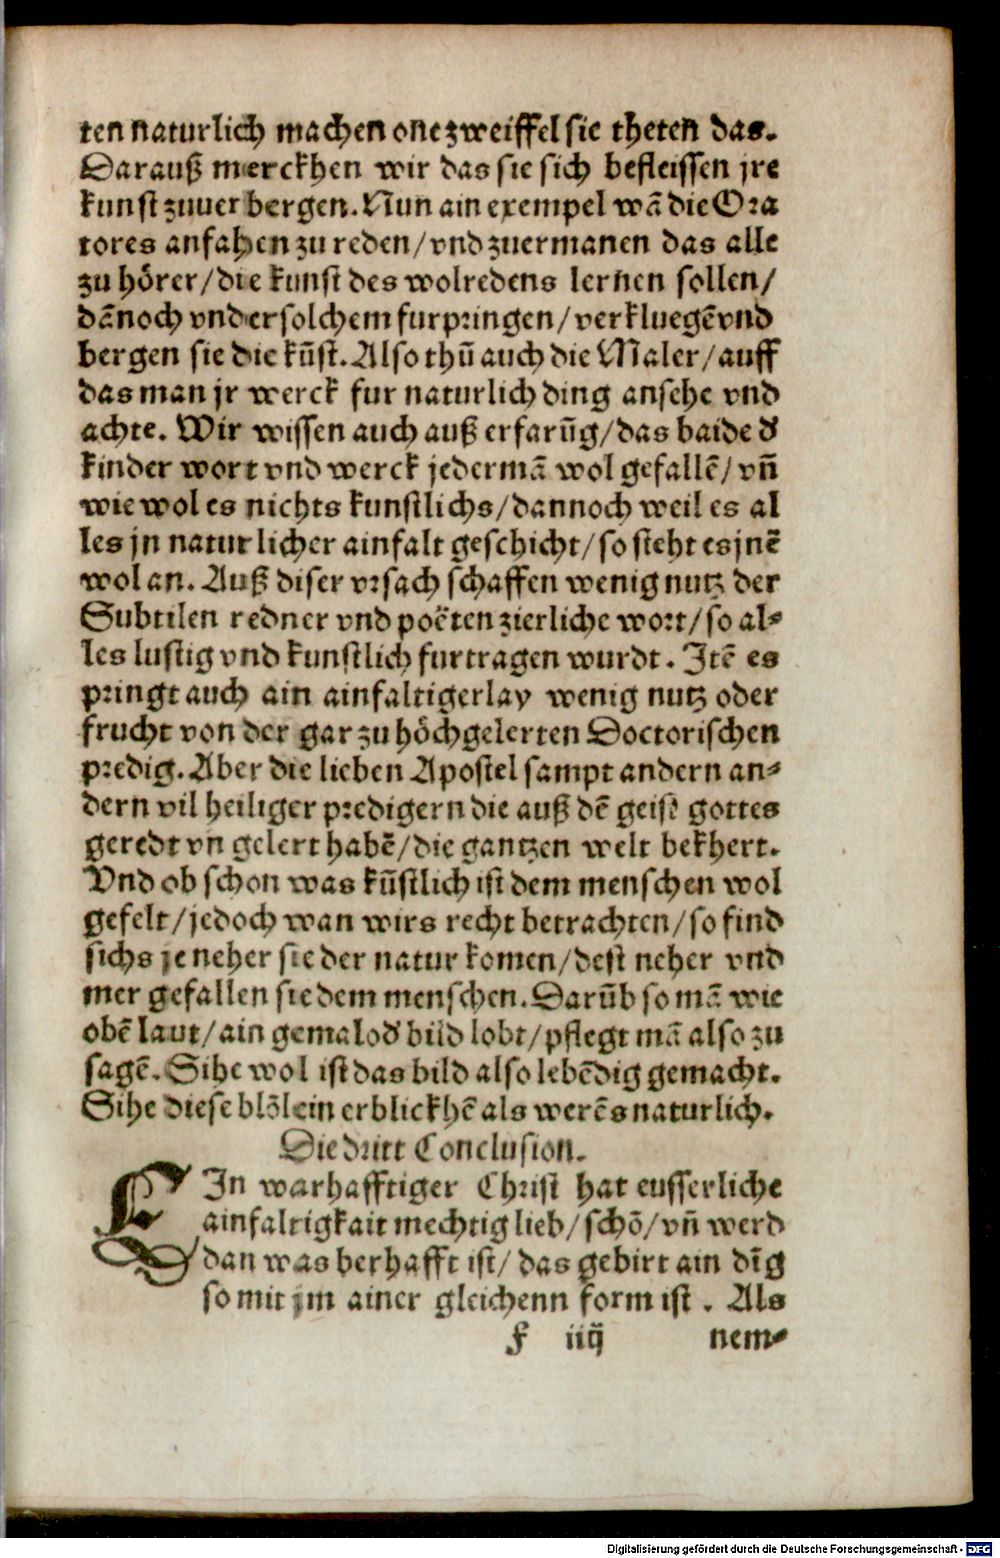 ten naturlich machen one zweiffel sie theten das.
Darauß merckhen wir das sie sich befleissen jre
kunst zuuerbergen. Nun ain exempel wã die Ora
tores anfahen zu reden/vnd zuermanen das alle
zu hörer/die kunst des wolredens lernen sollen/
dãnoch vnder solchem furpringen/verkluegẽ vnd
bergen sie die kũst. Also thũ auch die Maler/auff
das man jr werck fur naturlich ding ansehe vnd
achte. Wir wissen auch auß erfarũg/das baide d̕
kinder wort vnd werck jedermã wol gefallẽ/vñ
wie wol es nichts kunstlichs/dannoch weil es al
les jn naturlicher ainfalt geschicht/so steht es jnẽ
wol an. Auß diser vrsach schaffen wenig nutz der
Subtilen redner vnd poëten zierliche wort/so al⸗
les lustig vnd kunstlich furtragen wurdt. Jtẽ es
pringt auch ain ainfaltiger lay wenig nutz oder
frucht von der gar zu höchgelerten Doctorischen
predig. Aber die lieben Apostel sampt andern an⸗
dern vil heiliger predigern die auß dẽ geist gottes
geredt vñ gelert habẽ/die gantzen welt bekhert.
Vnd ob schon was kũstlich ist dem menschen wol
gefelt/jedoch wan wirs recht betrachten/so find
sichs je neher sie der natur komen/dest neher vnd
mer gefallen sie dem menschen. Darũb so mã wie
obẽ laut/ain gemalod̕ bild lobt/pflegt mã also zu
sagẽ. Sihe wol ist das bild also lebẽdig gemacht.
Sihe diese blõlein erblickhẽ als werẽs naturlich.
Die dritt Conclusion.
EIn warhafftiger Christ hat eusserliche
ainfaltigkait mechtig lieb/schõ/vñ werd
dan was berhafft ist/das gebirt ain dĩg
so mit jm ainer gleichenn form ist. Als
f iiij nem⸗
Digitalisierung gefördert durch die Deutsche Forschungsgemeinschaft - DFG